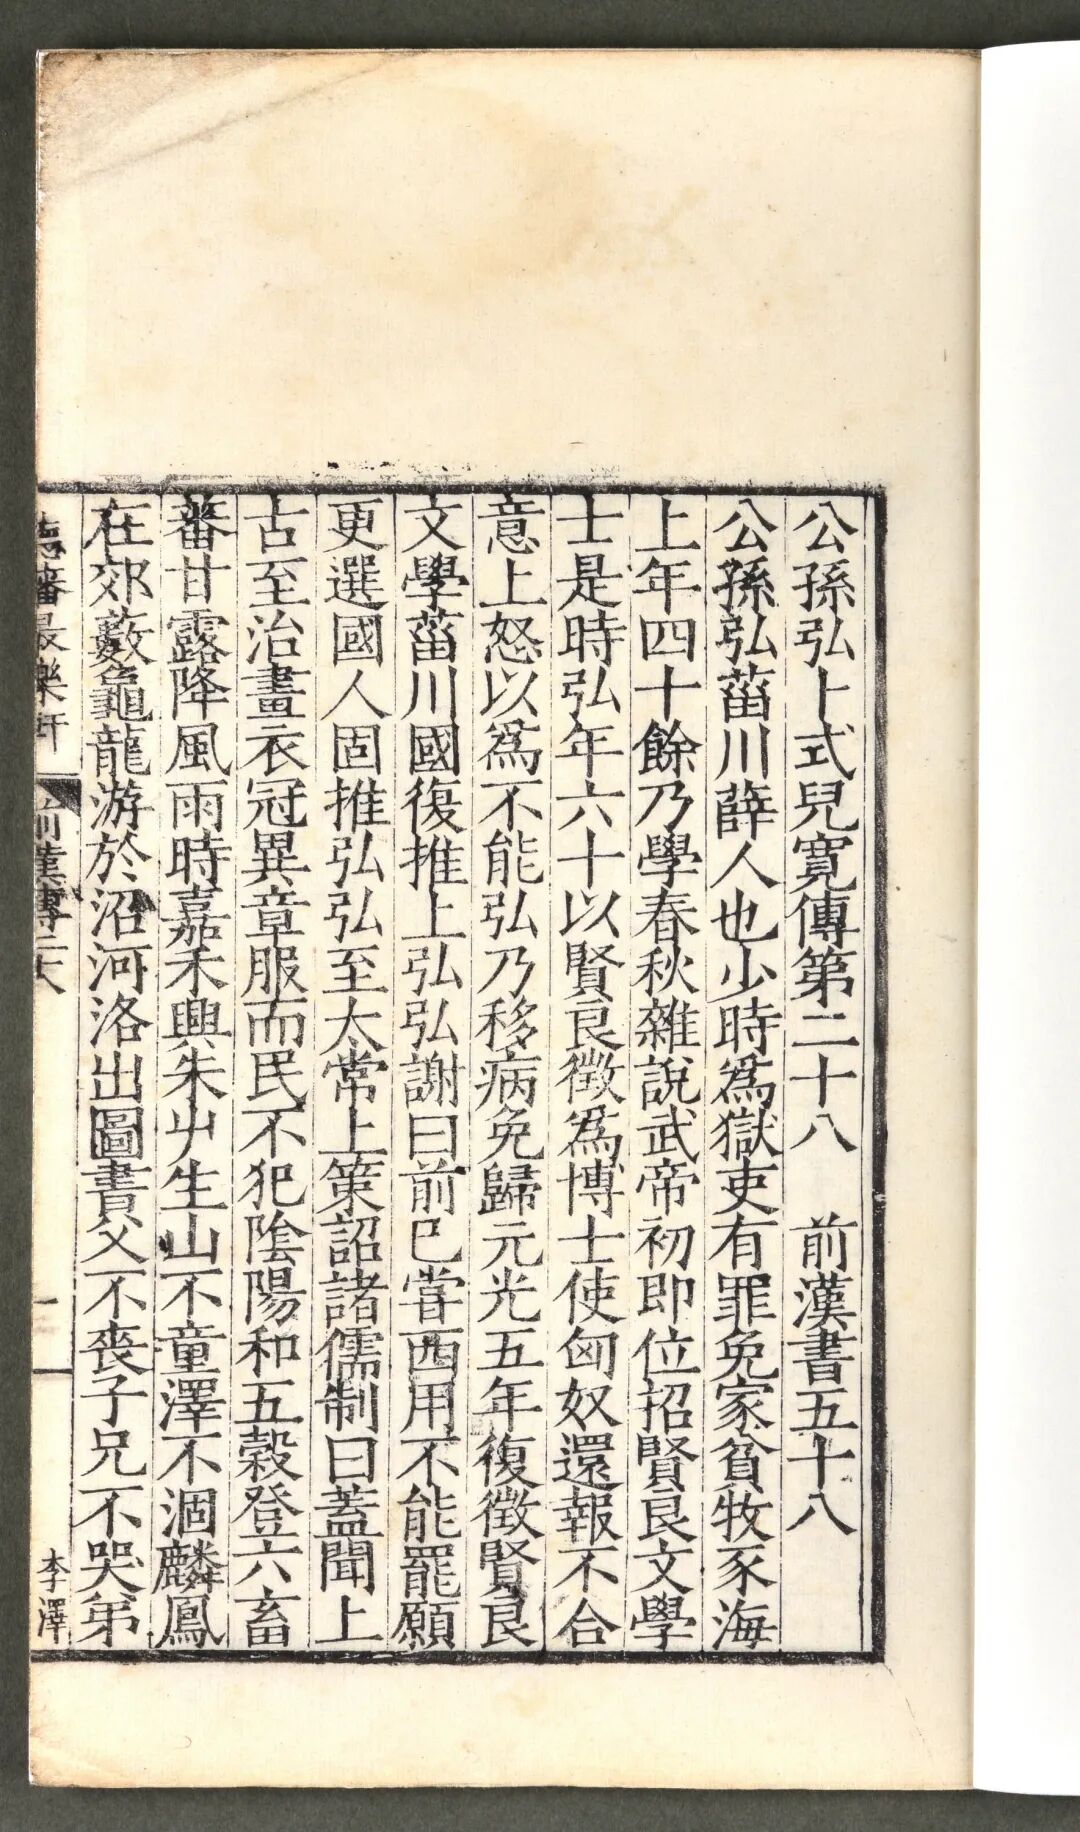 公孫弘卜式兒寬傳第二十八　前漢書五十八
公孫弘菑川薛人也少時爲獄吏有罪免家貧牧豕海
上年四十餘乃學春秋雜說武帝初即位招賢良文學
士是時弘年六十以賢良徵爲博士使匈奴還報不合
意上怒以爲不能弘乃移病免歸元光五年復徵賢良
文學菑川國復推上弘弘謝曰前已嘗西用不能罷願
更選國人固推弘弘至太常上策詔諸儒制曰蓋聞上
古至治畫衣冠異章服而民不犯陰陽和五穀登六畜
蕃甘露降風雨時嘉禾興朱屮生山不童澤不涸麟鳳
在郊藪龜龍游於沼河洛出圖書父不喪子兄不哭弟
德藩最樂軒
前漢傳二十八
李澤